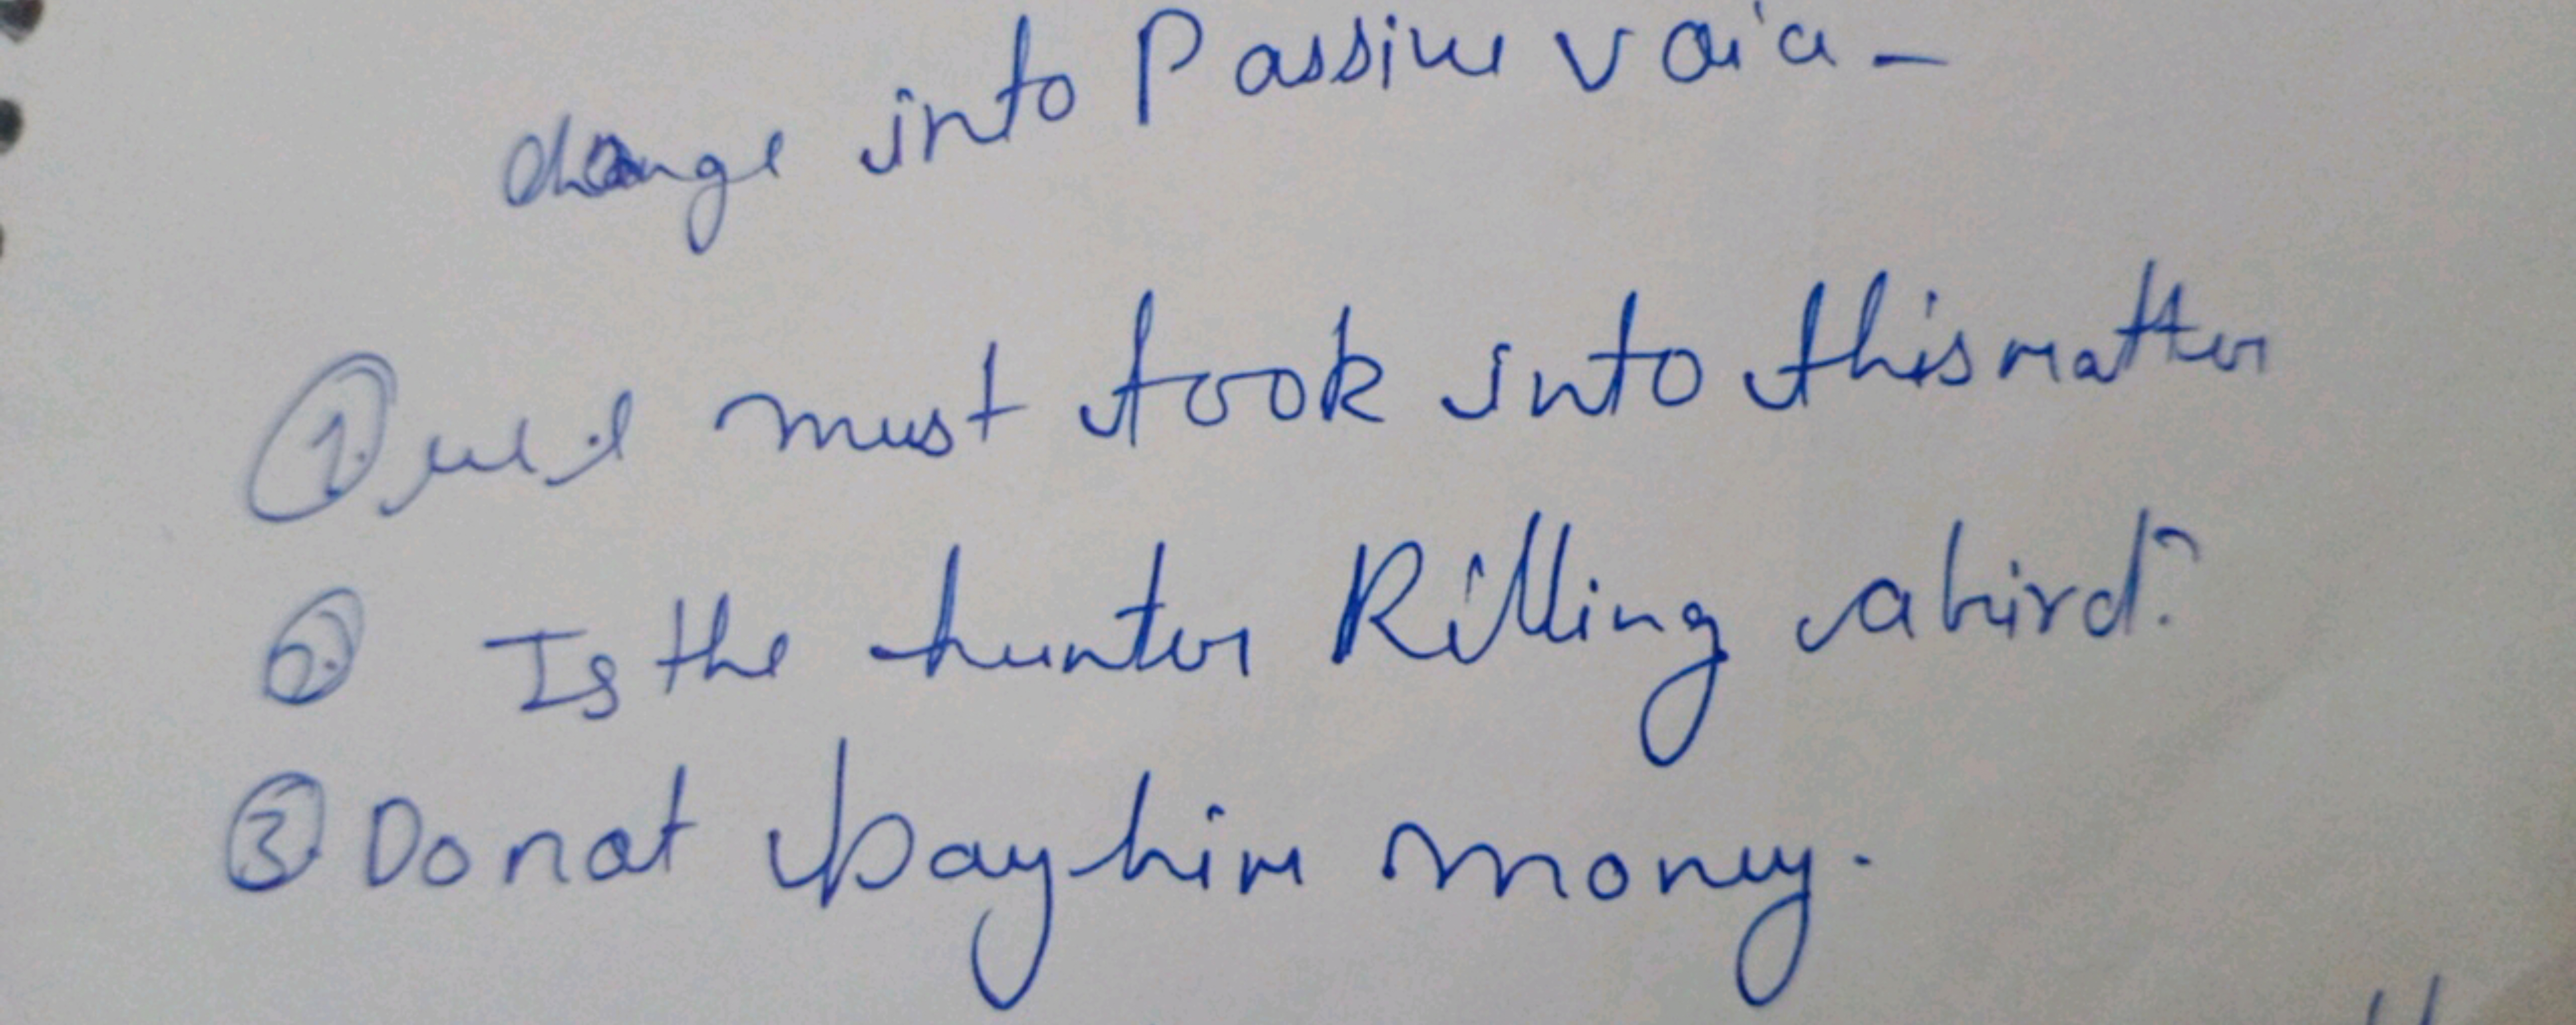 change into Passive voice -
① we must took into this matter
② Is the hunter Killing a bird?
③ Do not pay him money.